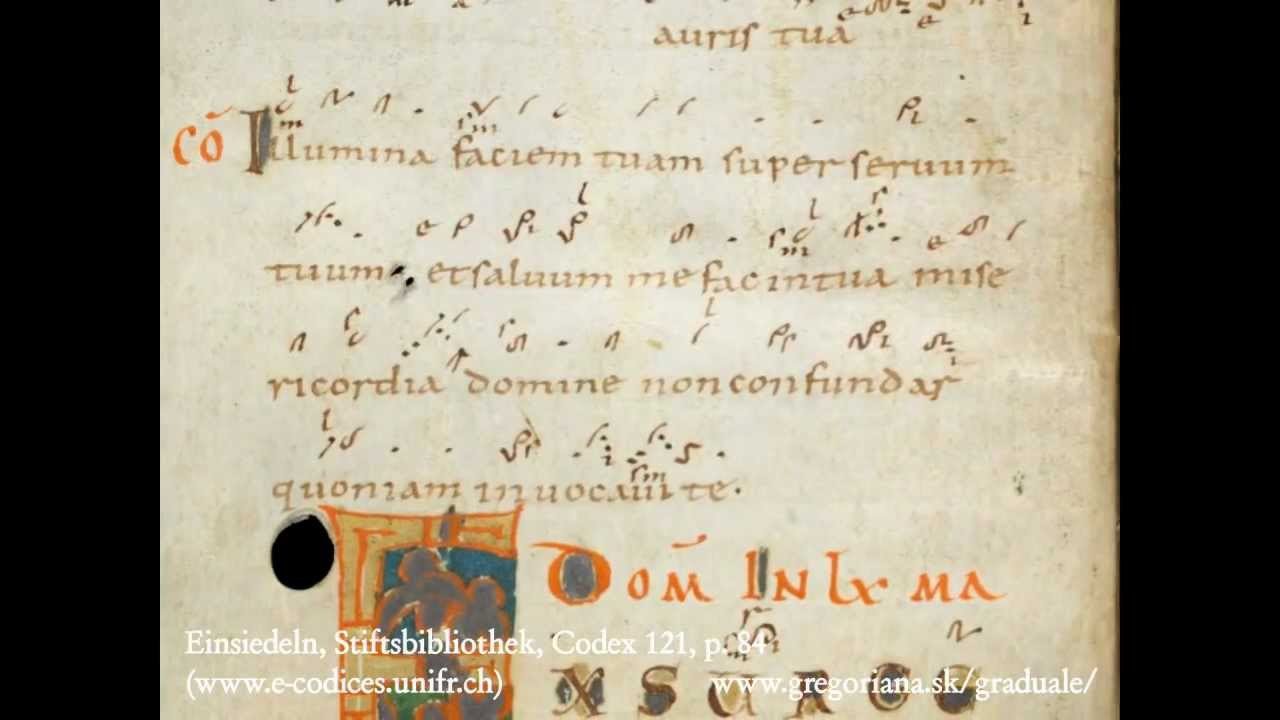 auris tua
CÕ Illumina faciem tuam super seruum
tuum, et saluum me fac in tua mise
ricordia domine non confundar
quoniam inuocaui te.
DOM IN LX MA
Einsiedeln, Stiftsbibliothek, Codex 121, p. 84
(www.e-codices.unifr.ch) www.gregoriana.sk/graduale/